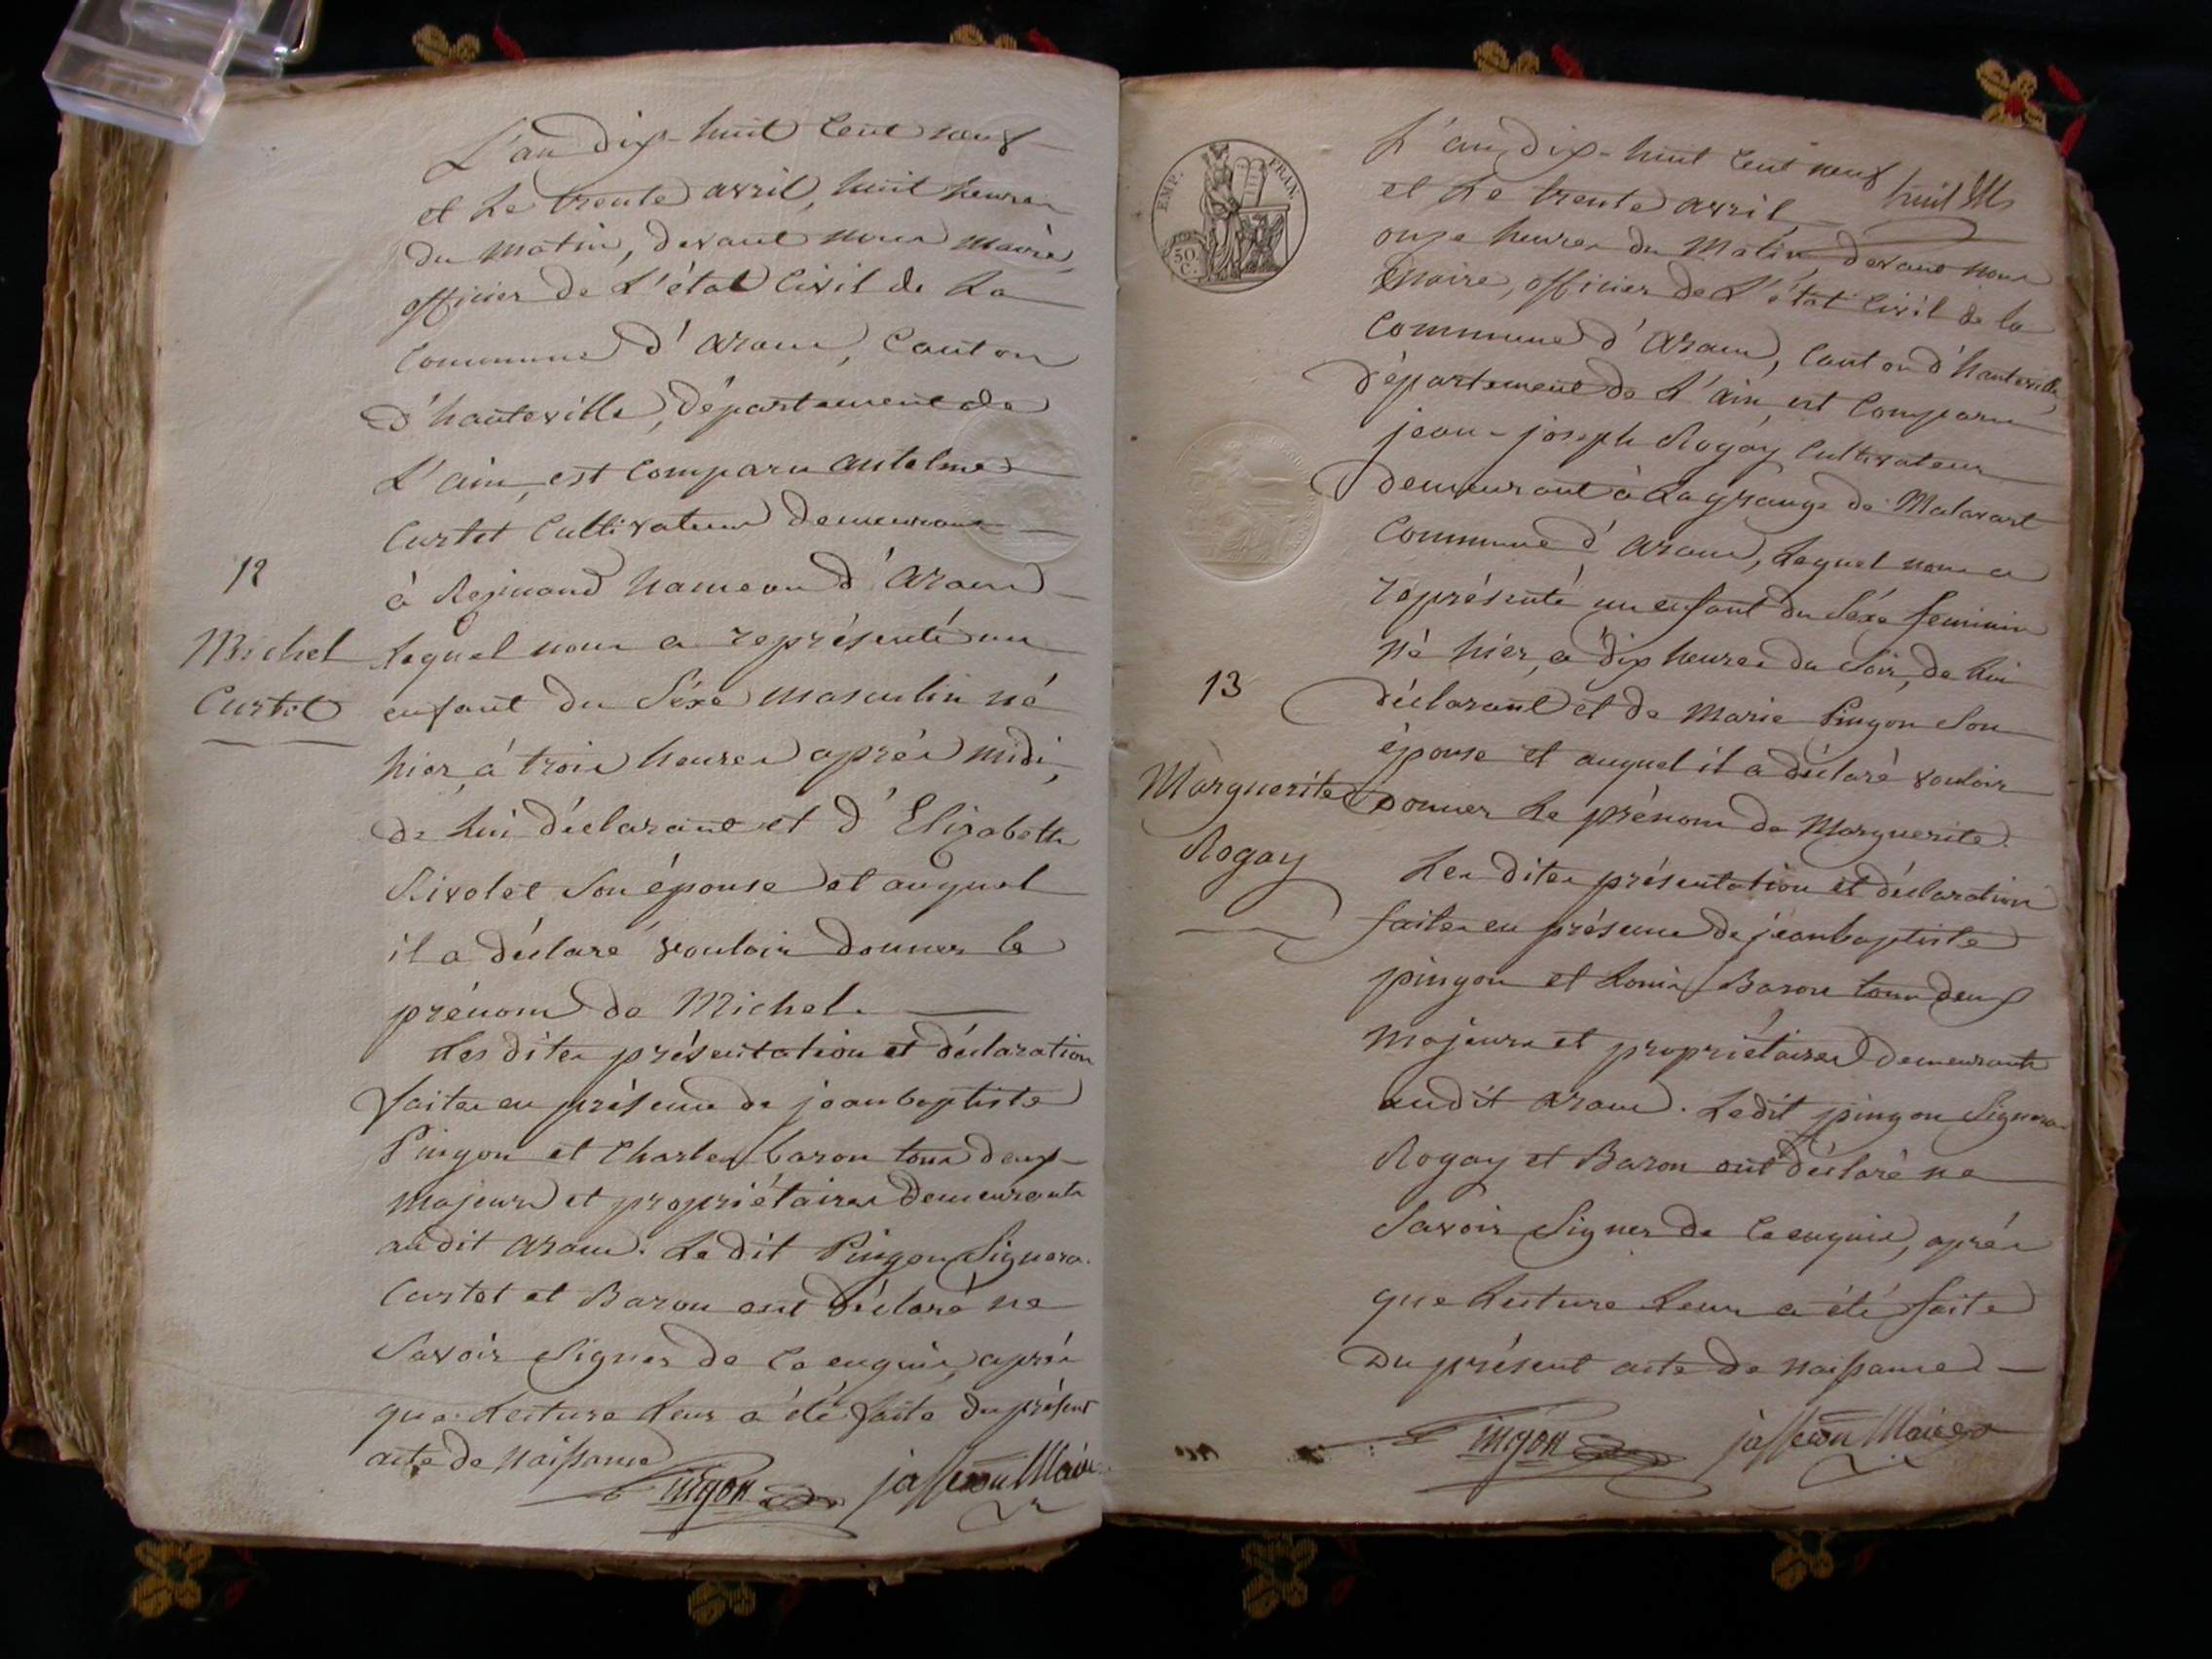 L'an dix-huit cent neuf
et le trente avril, huit heures
du matin, devant nous maire,
officier de l'état civil de la
commune d'aranc, canton
d'hauteville, département de
l'ain, est comparu antelme
Curtet cultivateur demeurant
à Rejmand hameau d'aranc
12
Michel
Curtet
lequel nous a représenté un
enfant du séxe masculin né
hier, à trois heures après midi,
de lui déclarant et d'Elizabeth
Rivolet son épouse et auquel
il a déclaré vouloir donner le
prénom de Michel.
Les dites présentation et déclaration
faites en présence de jean baptiste
Pingon et Charles baron tous deux
majeurs et propriétaires demeurants
audit aranc. Le dit Pingon signera.
Curtet et Baron ont déclaré ne
savoir signer de ce enquis, après
que lecture leur a été faite du présent
acte de naissance
Pingon jasseron Maire
EMP. FRAN.
50 C.
L'an dix-huit cent neuf
et le trente avril huit
onze heures du matin, devant nous
maire, officier de l'état civil de la
commune d'aranc, canton d'hauteville,
département de l'ain, est comparu
jean-joseph Rogay cultivateur
demeurant à la grange de Malavart
commune d'aranc, lequel nous a
représenté un enfant du séxe feminin
né hier, à dix heures du soir, de lui
13
déclarant et de Marie Pingon son
épouse et auquel il a déclaré vouloir
Marguerite
Rogay
donner le prénom de Marguerite.
Les dites présentation et déclaration
faites en présence de jean baptiste
pingon et Louis Baron tous deux
majeurs et propriétaires demeurants
audit aranc. Ledit pingon signera
Rogay et Baron ont déclaré ne
savoir signer de ce enquis, après
que lecture leur a été faite
du présent acte de naissance
Pingon jasseron Maire